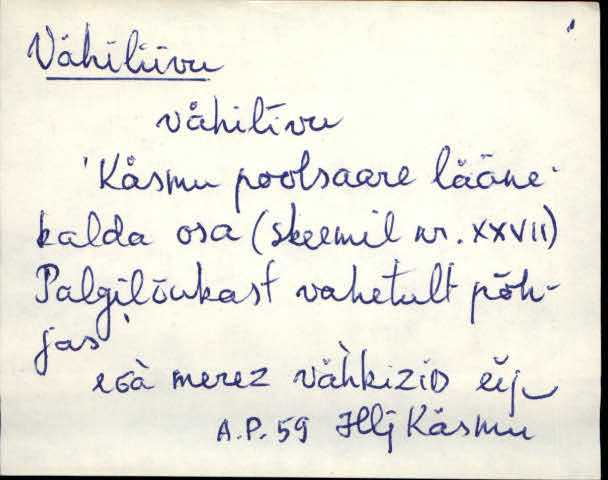 Vähiliivu
vähilīvu
'Käsmu poolsaare lääne-
kalda osa (skeemil nr. XXVII)
Palgilõukast vahetult põh-
jas'
merez
A.P. 59 Hlj Käsmu